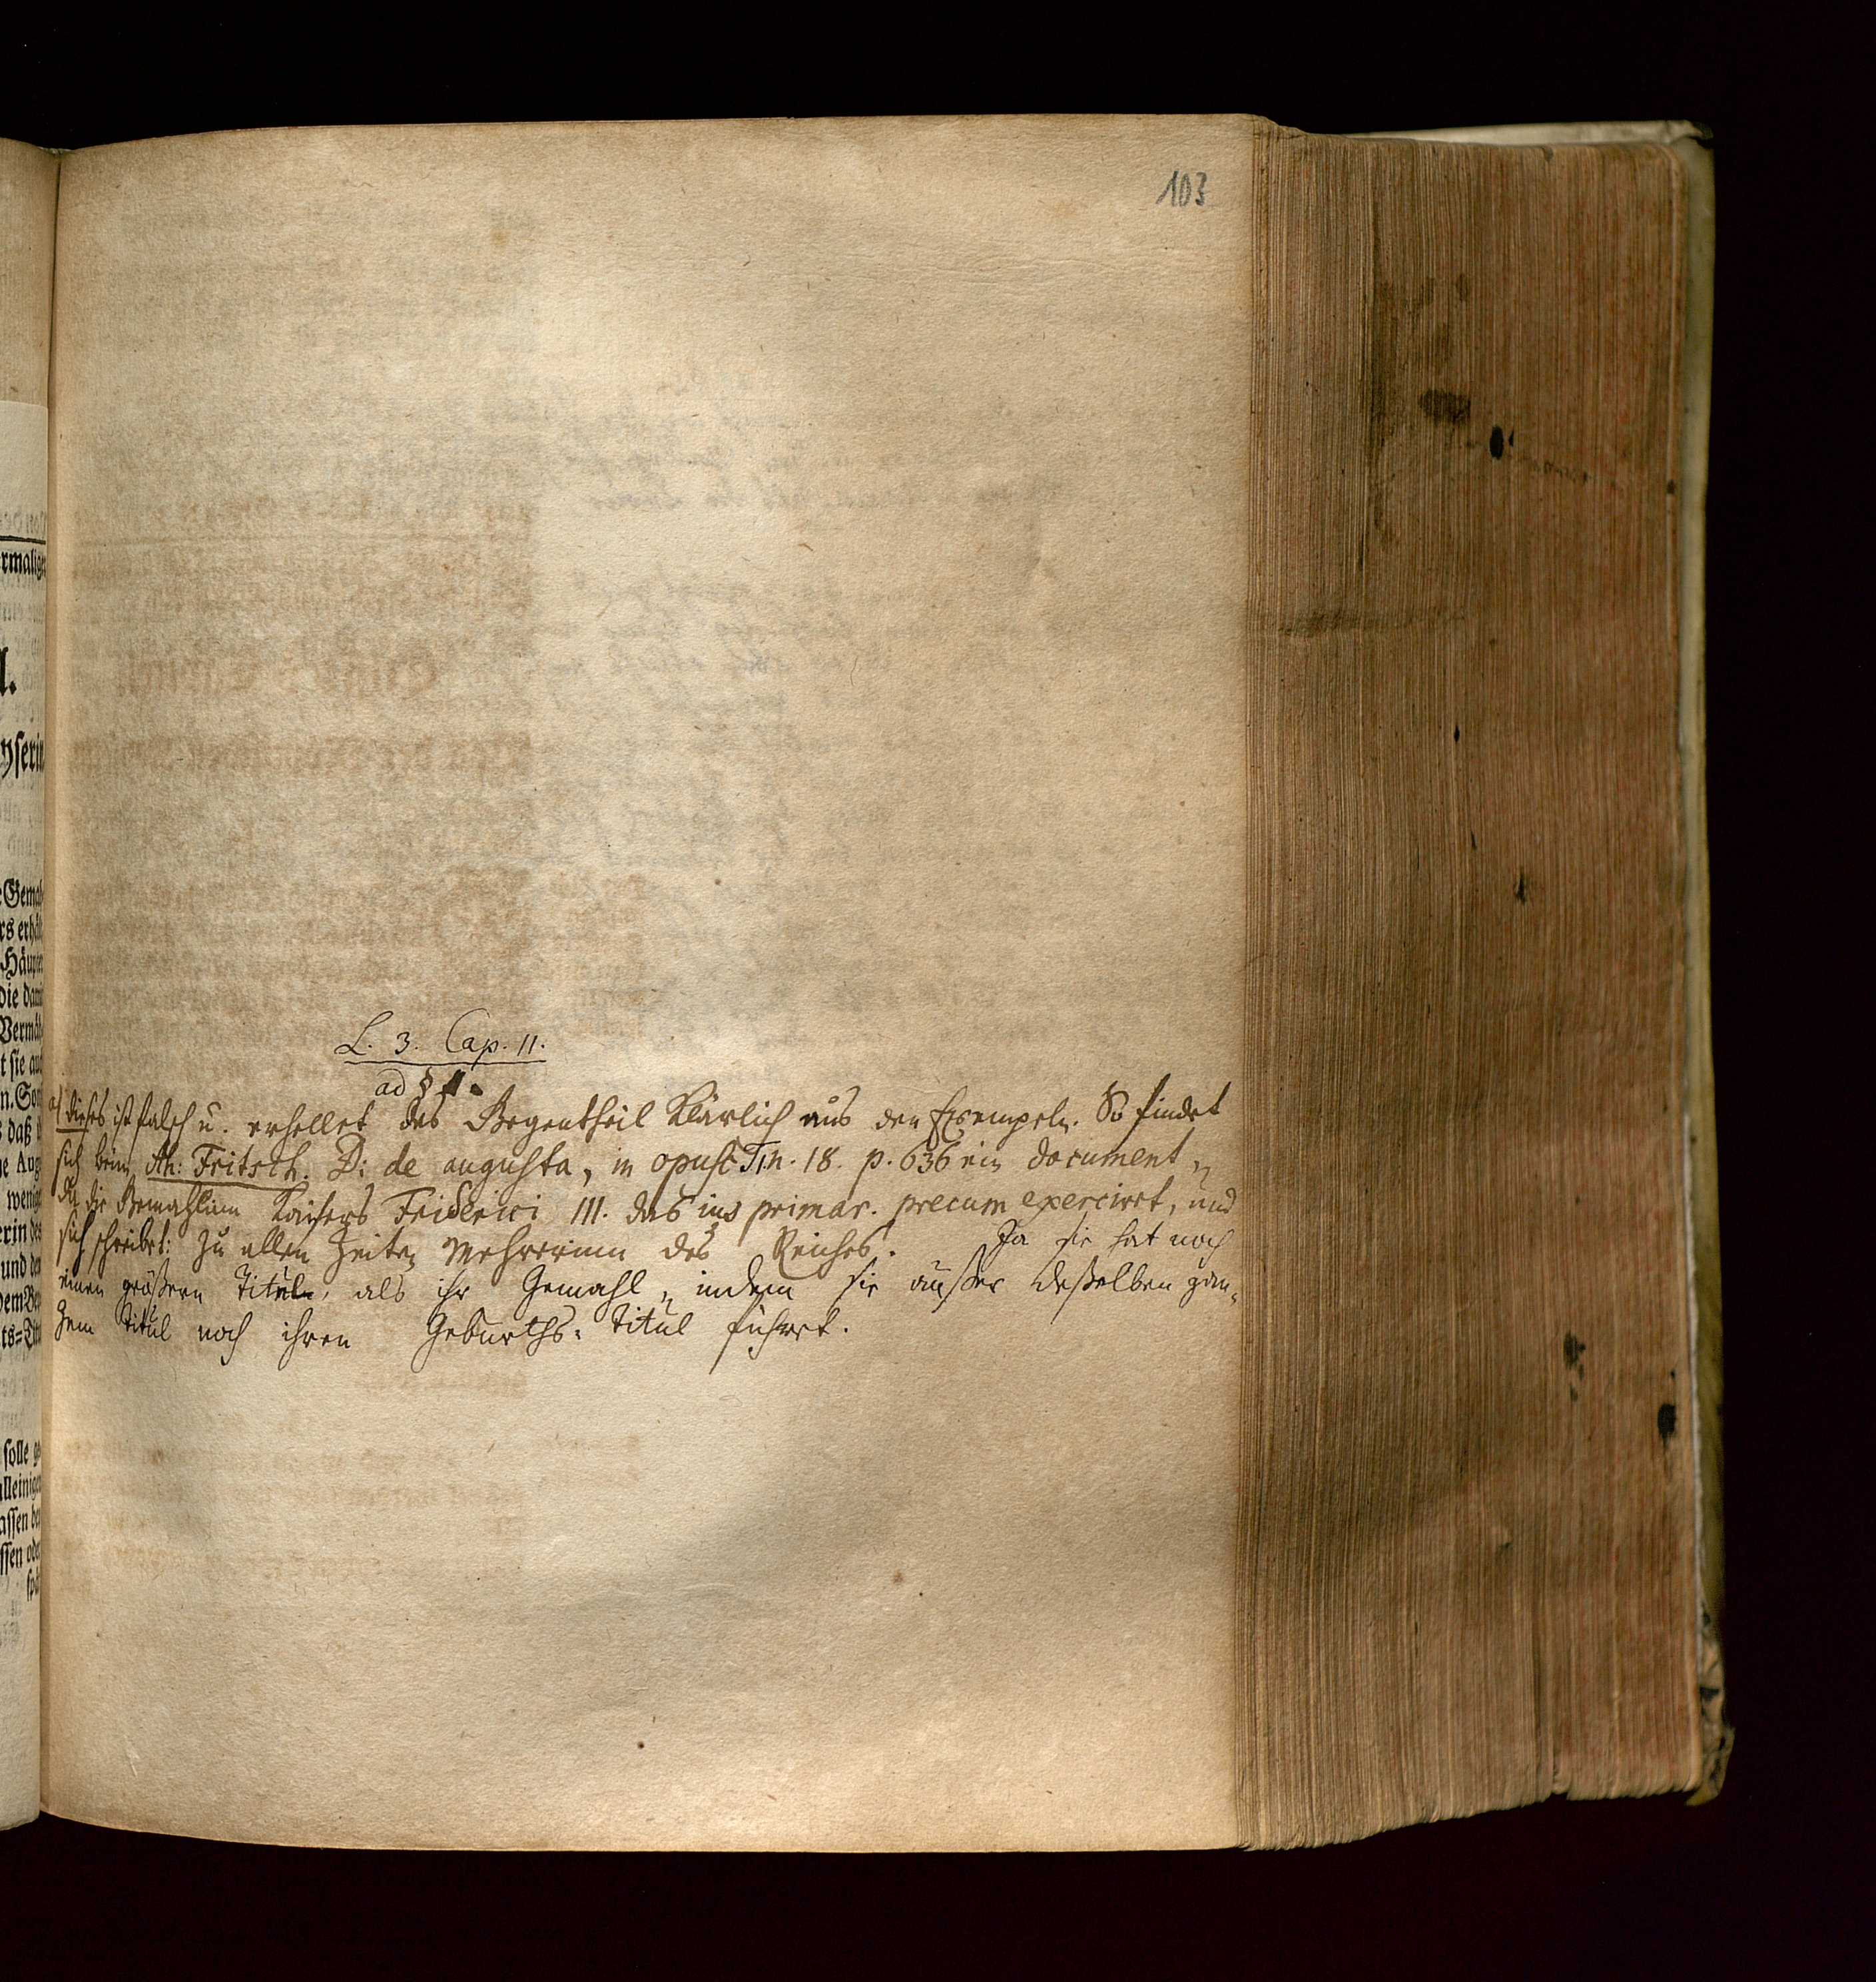 103
L. 3. Cap. 11.
ad §
a) dieses ist falsch u. erhellet das Gegentheil klärlich aus den Exempeln. So findet
sich beim Ah: Fritsch. D: de augusta, in opusc T.1. n. 18. p. 636 ein document,
da die Gemahlinn Kaisers Friderici III. das ius primar. precum exercirt, und
sich schreibt: zu allen Zeiten Mehrerinn des Reiches. Ja sie hat noch
einen größern Titul, als ihr Gemahl, indem sie außer deßelben gan-
zem Titul noch ihren Geburths-Titul führet.
rmalige
yserin
Gemah
rs erhält
Häupter
die dami
Vermäh
t sie auc
daß
wenige
erin des
und den
solle ge
lleinigen
assen der
ssen oder
spä